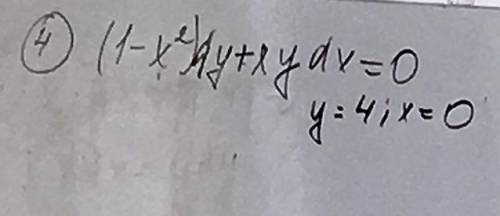 ④ (1-x²)dy+xydx=0
y=4; x=0